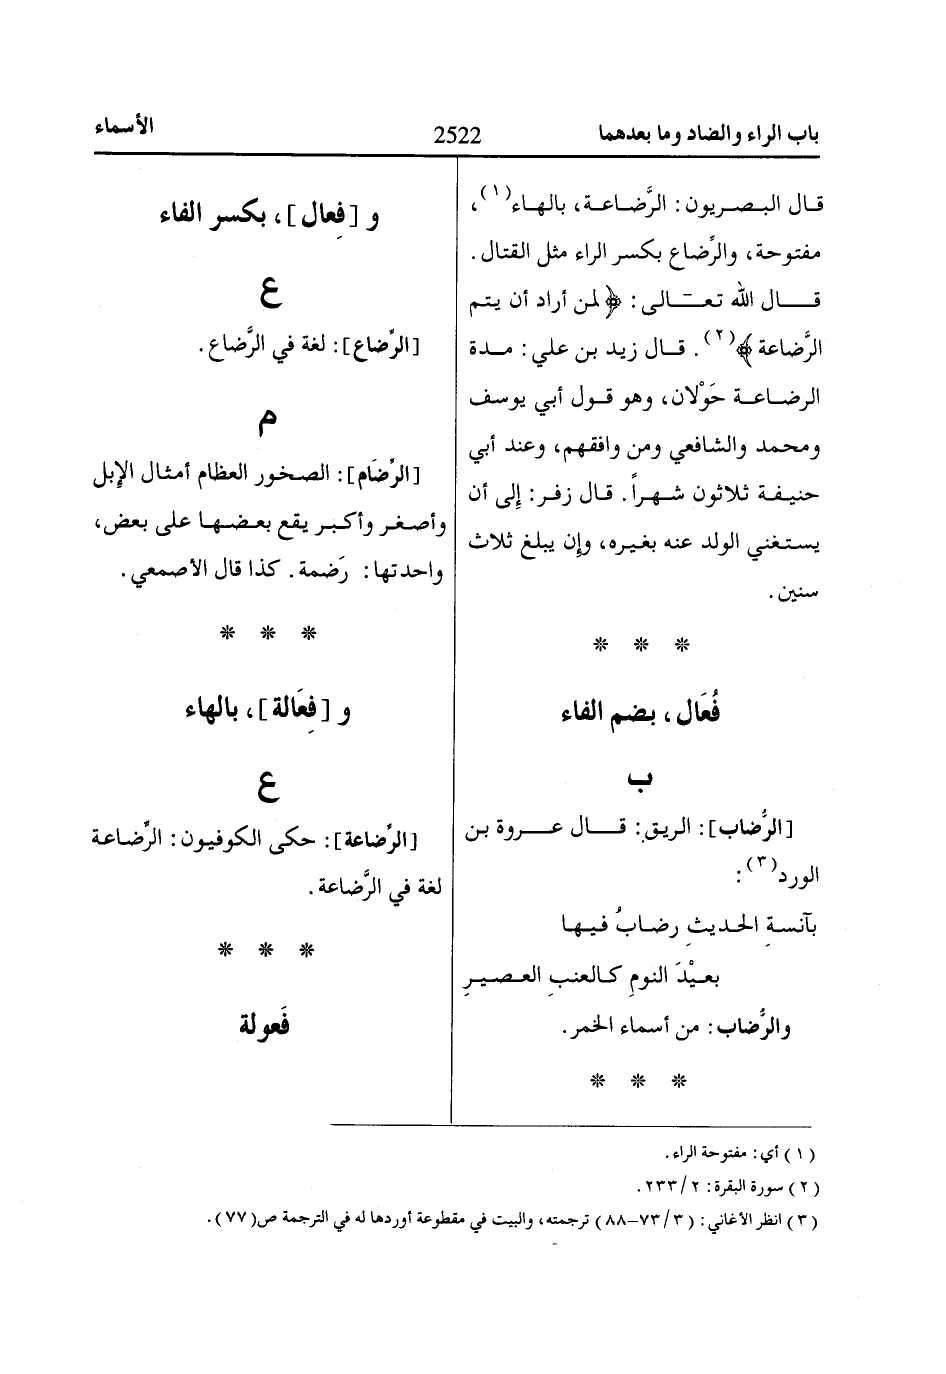 باب الراء والضاد وما بعدهما
2522
الأسماء
قال البصريون: الرَّضاعة، بالهاء(١)،
مفتوحة، والرِّضاع بكسر الراء مثل القتال.
قال الله تعالى: ﴿لمن أراد أن يتم
الرَّضاعة﴾(٢). قال زيد بن علي: مدة
الرضاعة حَوْلان، وهو قول أبي يوسف
ومحمد والشافعي ومن وافقهم، وعند أبي
حنيفة ثلاثون شهراً. قال زفر: إلى أن
يستغني الولد عنه بغيره، وإن يبلغ ثلاث
سنين.
* * *
فُعَال، بضم الفاء
ب
[الرُّضاب]: الريق: قال عروة بن
الورد(٣):
بآنسةِ الحديثِ رضابُ فيها
بعيْدَ النومِ كالعنبِ العصيرِ
والرُّضاب: من أسماء الخمر.
* * *
و [فِعال]، بكسر الفاء
ع
[الرِّضاع]: لغة في الرَّضاع.
م
[الرِّضَام]: الصخور العظام أمثال الإبل
وأصغر وأكبر يقع بعضها على بعض،
واحدتها: رَضمة. كذا قال الأصمعي.
* * *
و [فِعَالة]، بالهاء
ع
[الرِّضاعة]: حكى الكوفيون: الرِّضاعة
لغة في الرَّضاعة.
* * *
فَعولة
(١) أي: مفتوحة الراء.
(٢) سورة البقرة: ٢/٢٣٣.
(٣) انظر الأغاني: (٣/٧٣-٨٨) ترجمته، والبيت في مقطوعة أوردها له في الترجمة ص(٧٧).